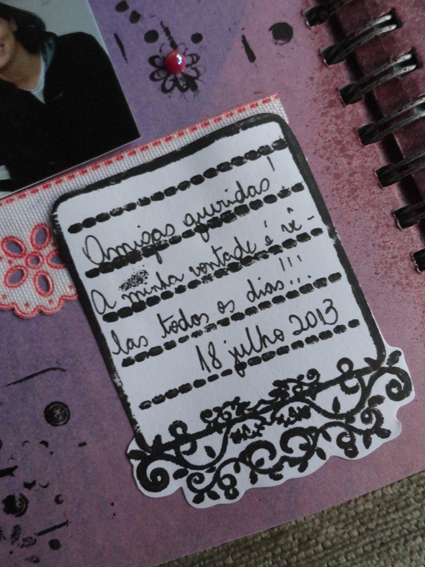 Amigas queridas!
A minha vontade é vê-
las todos os dias!!!
18 julho 2013